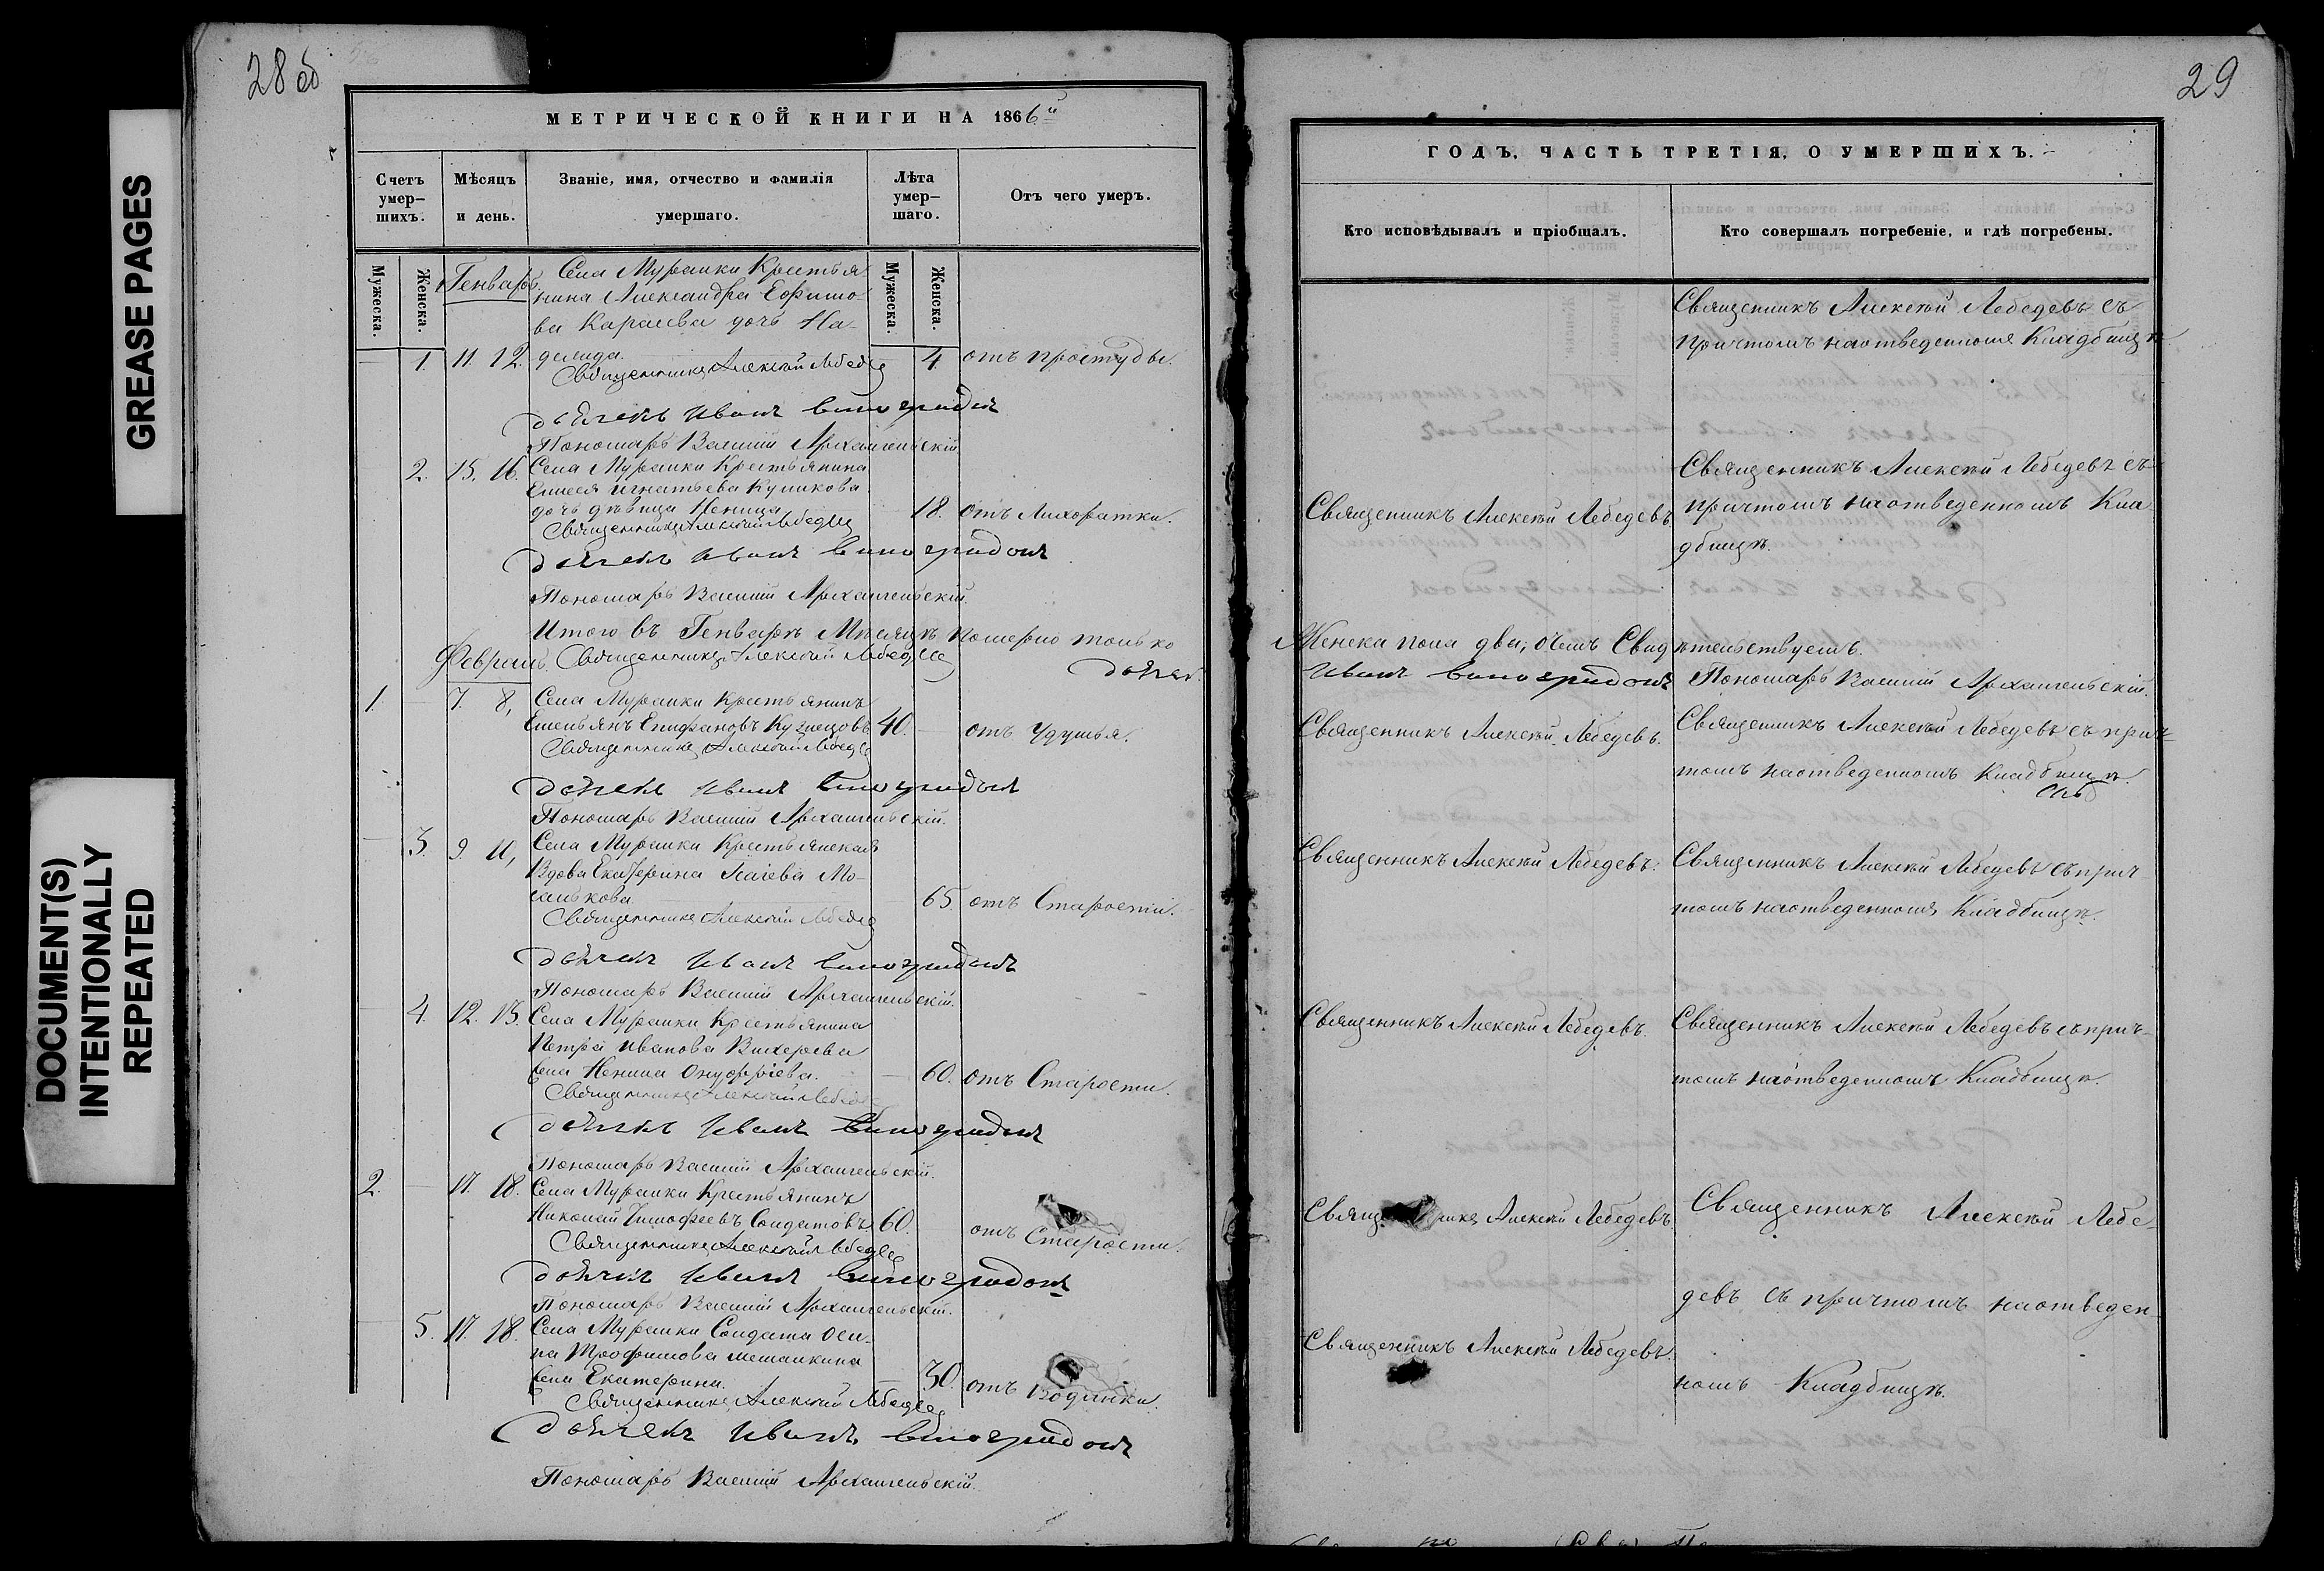 GREASE PAGES
DOCUMENT(S)
INTENTIONALLY
REPEATED
28 об
МЕТРИЧЕСКОЙ КНИГИ НА 1866й
Счетъ умер-шихъ.
Мѣсяцъ и день.
Званіе, имя, отчество и фамилія умершаго.
Лѣта умер-шаго.
Отъ чего умеръ.
Мужеска.
Женска.
Мужеска.
Женска.
Генварь.
Села Муранки Крестья
нина Александра Ефимо-
ва Караева дочь На-
1. 11. 12. делида. 4. отъ простуды.
Священникъ Алексѣй Лебедев
Дьячекъ Иванъ Виноградовъ
Пономарь Василий Архангельскій
2. 15. 16. Села Муранки Крестьянина
Елисея Игнатьева Куликова
дочь дѣвица 18. отъ Лихорадки.
Священникъ Алексѣй Лебедев
Дьячекъ Иванъ Виноградовъ
Пономарь Василий Архангельскій.
Итого въ Генварѣ Мѣсяцѣ Померло только
Февраль. Священникъ Алексѣй Лебедев Дьячек.
1. 7. 8. Села Муранки Крестьянинъ
Емельянъ Епифановъ Кузнецовъ 40. отъ Удушья.
Священникъ Алексѣй Лебедев
Дьячекъ Иванъ Виноградовъ
Пономарь Василий Архангельскій.
3. 9. 10, Села Муранки Крестьянская
Вдова Екатерина Исаіева Мо-
салькова 65. отъ Старости.
Священникъ Алексѣй Лебедев
Дьячекъ Иванъ Виноградовъ
Пономарь Василий Архангельскій.
4. 12. 13. Села Муранки Крестьянина
Петра Иванова Вихерева
Жена Ненила Онуфріева. 60. отъ Старости.
Священникъ Алексѣй Лебедев
Дьячекъ Иванъ Виноградовъ
Пономарь Василий Архангельскій.
2. 17. 18. Села Муранки Крестьянинъ
Николай Тимофеевъ Солдатовъ 60. отъ Старости.
Священникъ Алексѣй Лебедев
Дьячекъ Иванъ Виноградовъ
Пономарь Василий Архангельскій.
5. 17. 18. Села Муранки Солдата Оси-
па Трофимова Мешалкина
Жена Екатерина. 30. отъ Водянки.
Священникъ Алексѣй Лебедев
Дьячекъ Иванъ Виноградовъ
Пономарь Василий Архангельскій.
29
ГОДЪ, ЧАСТЬ ТРЕТІЯ, О УМЕРШИХЪ.
Кто исповѣдывалъ и пріобщалъ.
Кто совершалъ погребеніе, и гдѣ погребены.
Священникъ Алексѣй Лебедевъ съ
причтомъ на отведенномъ Кладбищѣ
Священникъ Алексѣй Лебедевъ
Священникъ Алексѣй Лебедевъ съ
причтомъ на отведенномъ Кла
дбищѣ.
Женска пола два; о чемъ Свидѣтельствуемъ.
Иванъ Виноградовъ Пономарь Василий Архангельскій.
Священникъ Алексѣй Лебедевъ.
Священникъ Алексѣй Лебедевъ съ прич-
томъ на отведенномъ Кладбищѣ.
Священникъ Алексѣй Лебедевъ.
Священникъ Алексѣй Лебедевъ съ прич
томъ на отведенномъ Кладбищѣ.
Священникъ Алексѣй Лебедевъ.
Священникъ Алексѣй Лебедевъ съ прич-
томъ на отведенномъ Кладбищѣ.
Священникъ Алексѣй Лебедевъ.
Священникъ Алексѣй Лебе-
девъ съ причтомъ на отведен
номъ Кладбищѣ.
Священникъ Алексѣй Лебедевъ.